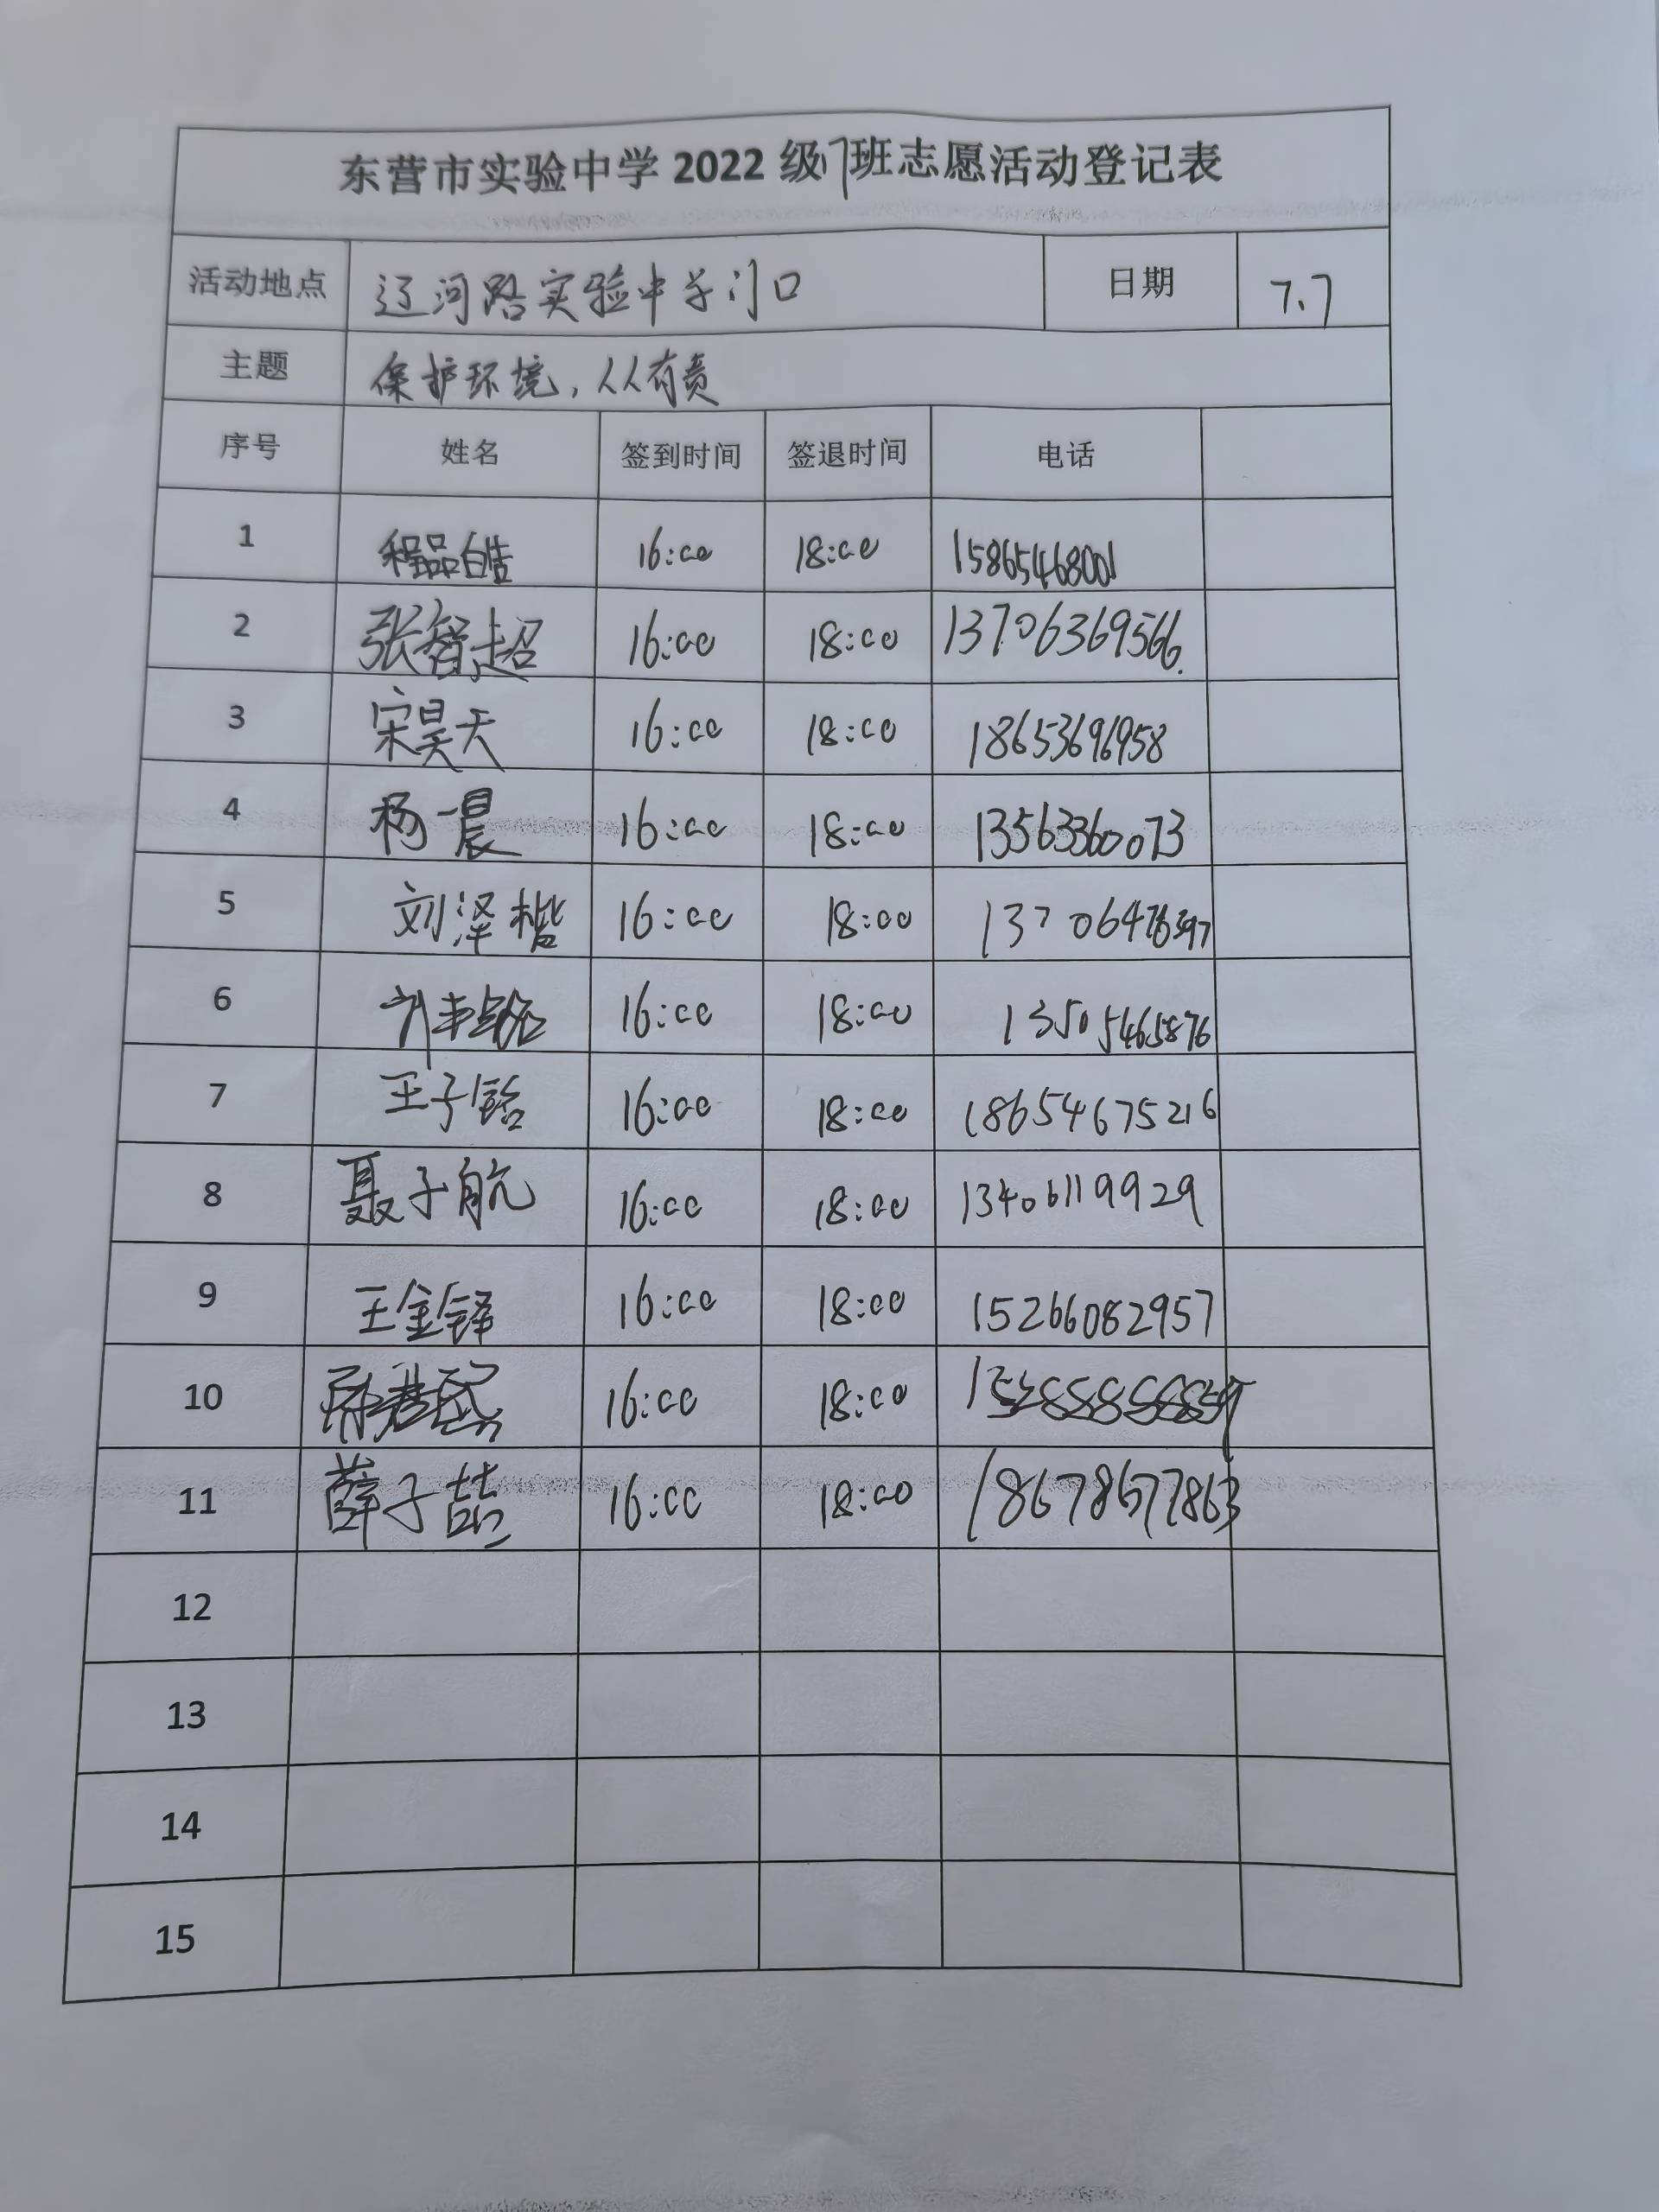 东营市实验中学 2022 级17班志愿活动登记表
活动地点 辽河路实验中学门口 日期 7.7
主题 保护环境,人人有责
序号 姓名 签到时间 签退时间 电话
1 程品皓 16:00 18:00 15865468001
2 张智超 16:00 18:00 13706369566
3 宋昊天 16:00 18:00 18653696958
4 杨一晨 16:00 18:00 13563360073
5 刘泽楷 16:00 18:00
6 16:00 18:00 13505465876
7 王子铭 16:00 18:00 18654675216
8 聂子航 16:00 18:00 13406119929
9 王金铎 16:00 18:00 15266082957
10 16:00 18:00
11 薛子喆 16:00 18:00 18678677863
12
13
14
15